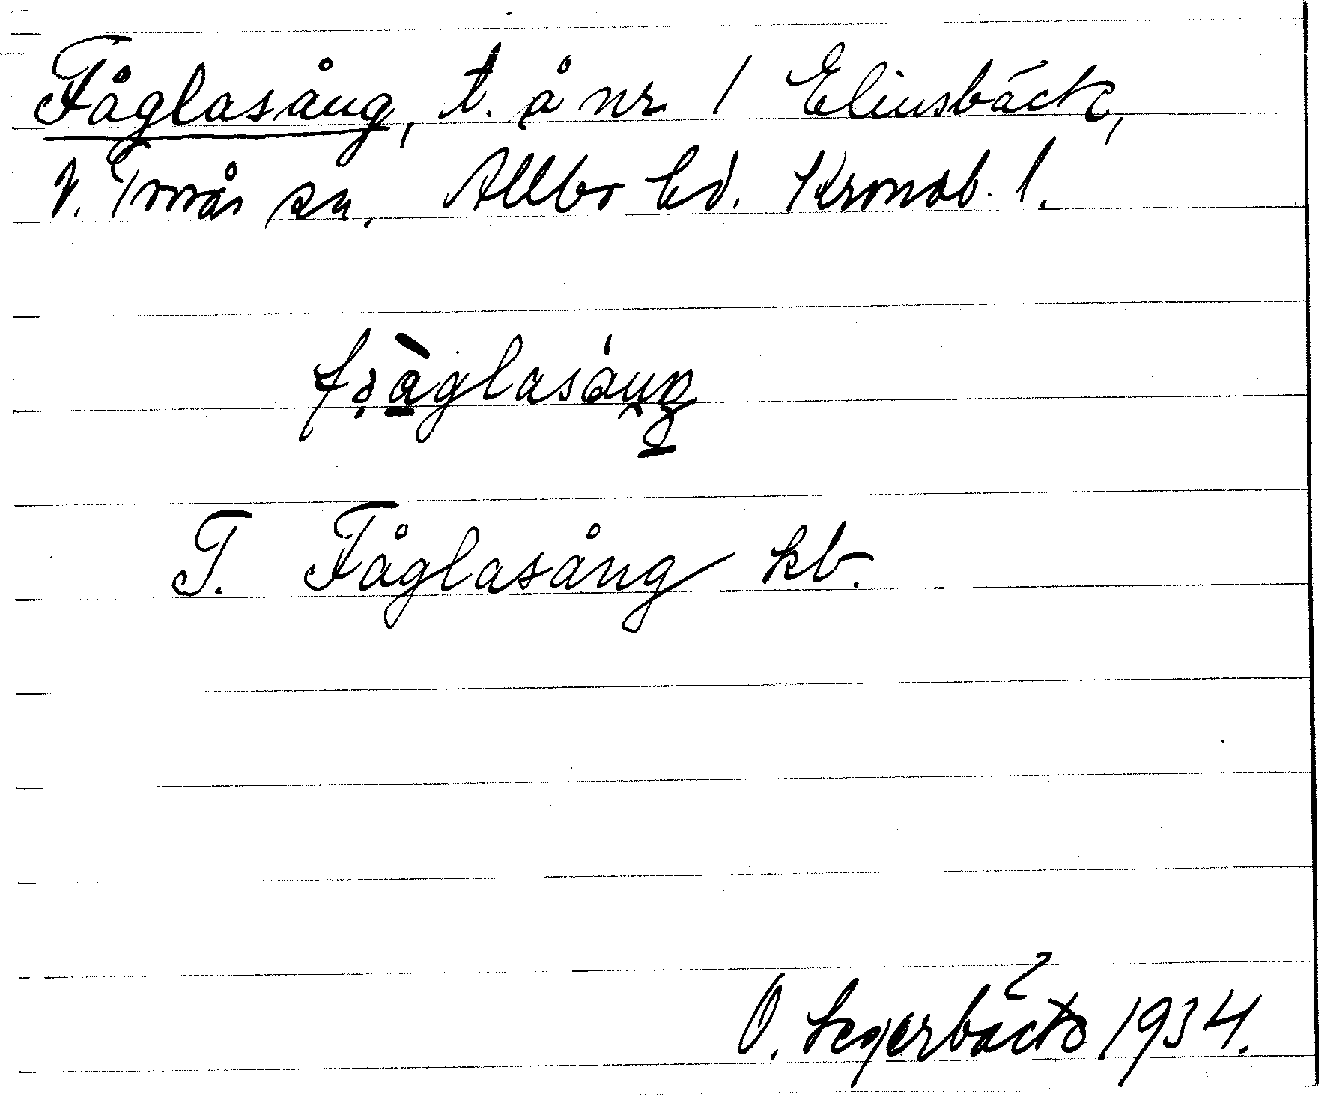 Fåglasång, t. å nr 1 Elinsbäck,
V. Torsås sn. Allbo hd. Kronob. l.
fåglasång
T. Fåglasång kb.
O. Segerbäck 1934.